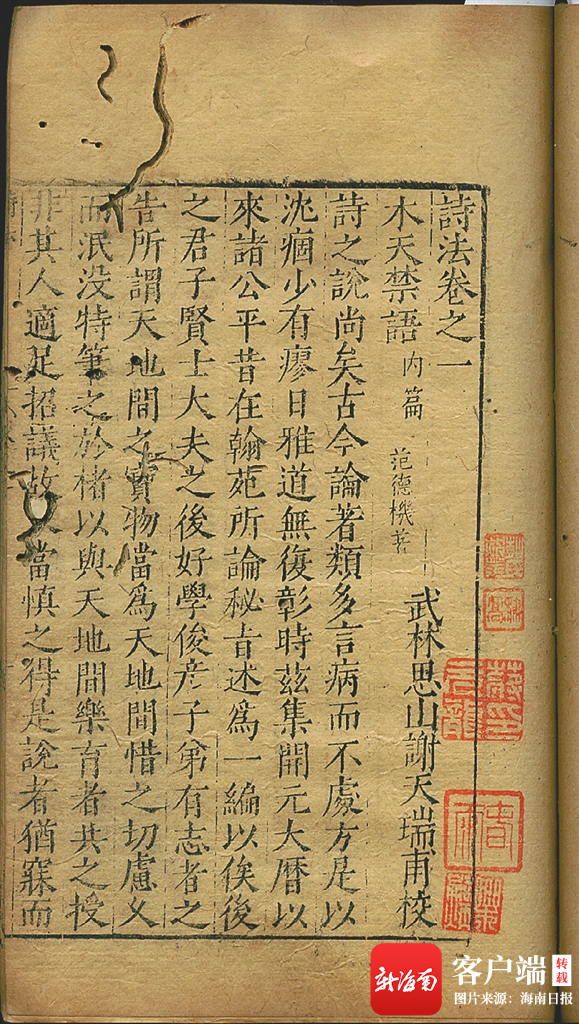 詩法卷之一
武林思山謝天瑞甫校
木天禁語內篇 范德機著
詩之說尚矣古今論著類多言病而不處方是以
沈痼少有瘳日雅道無復彰時茲集開元大曆以
來諸公平昔在翰苑所論秘旨述爲一編以俟後
之君子賢士大夫之後好學俊彥子弟有志者之
告所謂天地間之寶物當爲天地間惜之切慮久
而泯没特筆之於楮以與天地間樂育者共之授
非其人適足招議故又當慎之得是說者猶寐而
新海南
客户端
转载
图片来源：海南日报